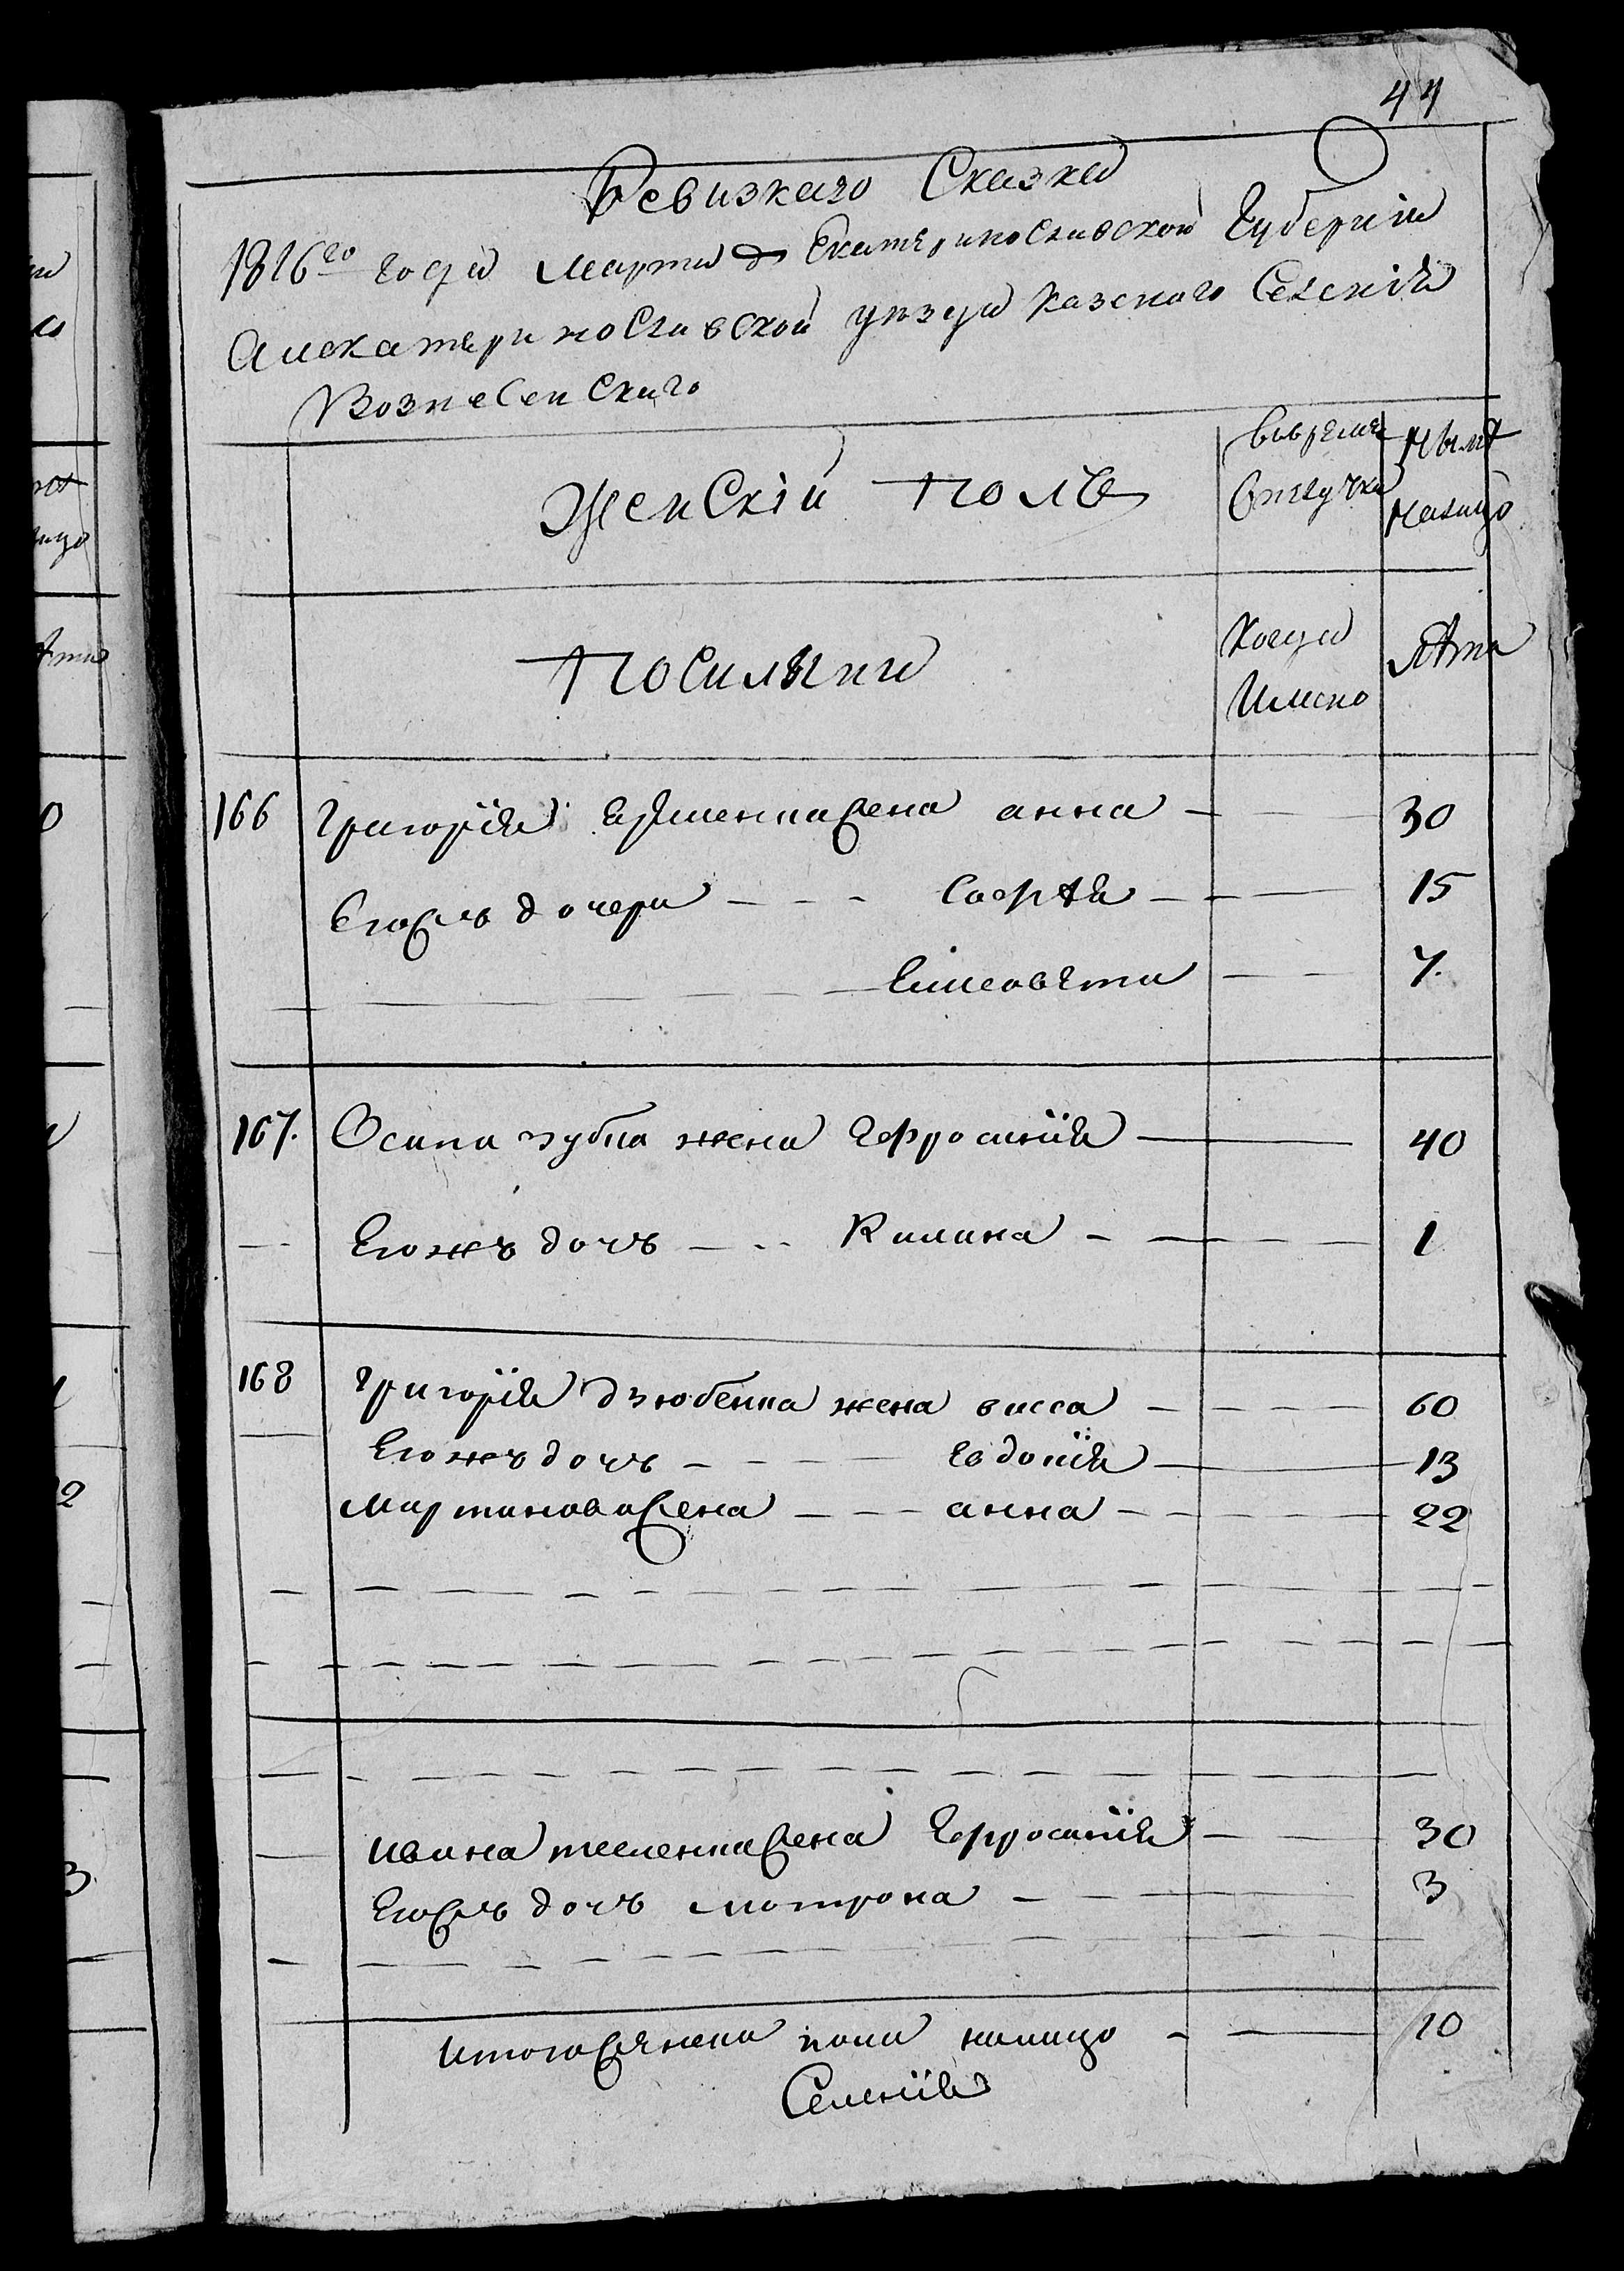 44
Ревизкаго Сказка
1816го года марта дн Екатеринославской Губерніи
Алекатеринославской уезда казенаго Селенія
Вознесенскаго
Женскій полъ
вовремя отлучки
ныне налицо
Посилянии
Когда Имено
лѣта
166 Григорія Ерменка жена анна 30
Егожъ дочери Софѣя 15
Елисовета 7.
167. Осипа зубка жена Ефросинія 40
Егожъ дочъ Килина 1
168 Григорія дзюбенка жена васса 60
Егожъ дочъ Евдокія 13
Мартинова жена анна 22
ивана жена Ефросинія 30
Егожъ дочъ мотрона 3
итого женска пола налицо 10
Селенія